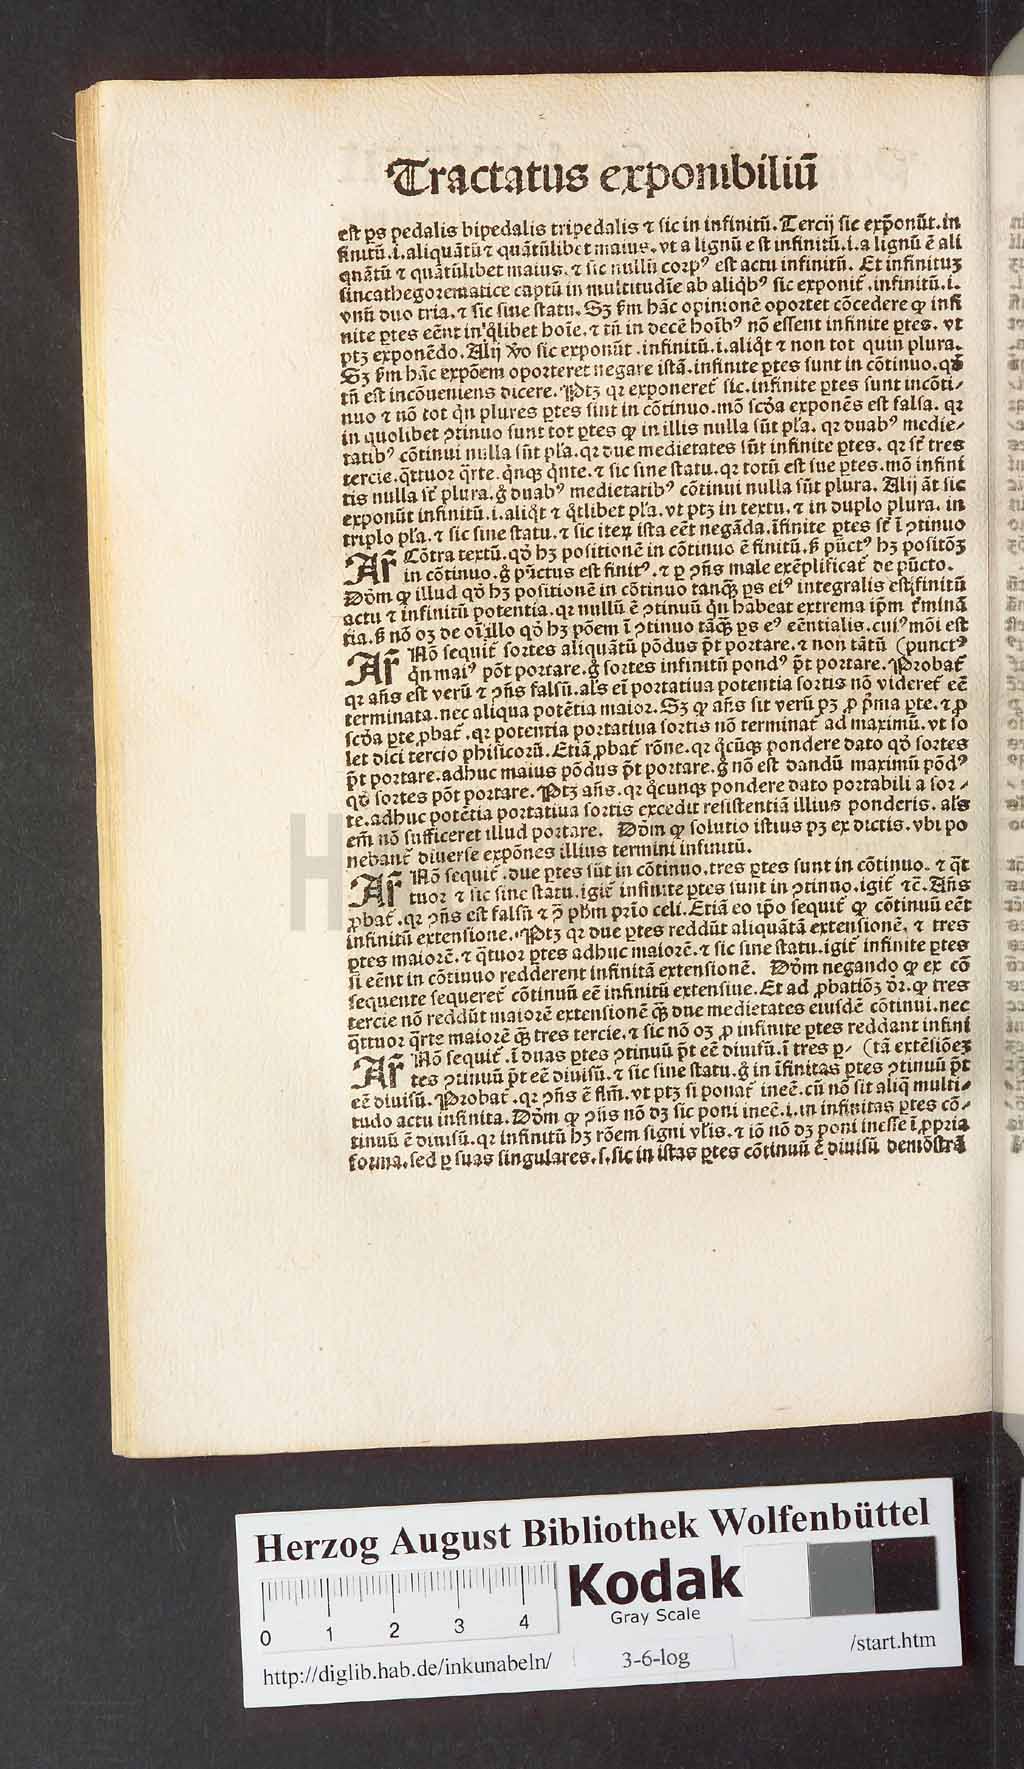 Tractatus exponibiliũ
est ps pedalis bipedalis tripedalis ⁊ sic in infinitũ. Tercij sic exponũt. in
finitũ .i. aliquãtũ ⁊ quãtũlibet maius. vt a lignũ est infinitũ .i. a lignũ ẽ ali
quãtũ ⁊ quãtũlibet maius. ⁊ sic nullũ corpꝰ est actu infinitũ. Et infinituȝ
sincathegorematice captũ in multitudĩe ab aliqbꝰ sic exponit̃ .infinitũ .i.
vnũ duo tria. ⁊ sic sine statu. Sȝ fm hãc opinionẽ oportet cõcedere ꝙ infi
nite ꝑtes eẽnt in qlibet hoĩe. ⁊ tñ in decẽ hoĩbꝰ nõ essent infinite ꝑtes. vt
ptȝ exponẽdo. Alij vo sic exponũt .infinitũ .i. aliqt ⁊ non tot quin plura.
Sȝ fm hãc expõem oporteret negare istã. infinite ꝑtes sunt in cõtinuo. qd
tñ est incõueniens dicere. Ptȝ qꝛ exponeret̃ sic. infinite ꝑtes sunt incõti-
nuo ⁊ nõ tot qn plures ꝑtes sint in cõtinuo. mõ scda exponẽs est falsa. qꝛ
in quolibet ꝯtinuo sunt tot ꝑtes ꝙ in illis nulla sũt pla. qꝛ duabꝰ medie-
tatibꝰ cõtinui nulla sũt pla. qꝛ due medietates sũt infinite ꝑtes. qꝛ st̃ tres
tercie. qttuor qrte. qnqꝫ qnte. ⁊ sic sine statu. qꝛ totũ est sue ꝑtes. mõ infini
tis nulla st̃ plura. g duabꝰ medietatibꝰ cõtinui nulla sũt plura. Alij ãt sic
exponũt infinitũ .i. aliqt ⁊ qtlibet pla. vt ptȝ in textu. ⁊ in duplo plura. in
triplo pla. ⁊ sic sine statu. ⁊ sic iteꝝ ista eẽt negãda. ĩfinite ꝑtes st̃ ĩ ꝯtinuo
Ar̃ Cõtra textũ. qd hȝ positionẽ in cõtinuo ẽ finitũ. ß pũctꝰ hȝ positõȝ
in cõtinuo. g pũctus est finitꝰ. ⁊ ꝑ ꝯñs male exẽplificat̃ de pũcto.
Dõm ꝙ illud qd hȝ positionẽ in cõtinuo tanqꝫ ps eiꝰ integralis est finitũ
actu ⁊ infinitũ potentia. qꝛ nullũ ẽ ꝯtinuũ qn habeat extrema ip̃m t̃minã
tia. ß nõ oȝ de oĩ illo qd hȝ põem ĩ ꝯtinuo tãqꝫ ps eꝰ eẽntialis. cuiꝰ mõi est
Ar̃ Nõ sequit̃ sortes aliquãtũ põdus p̃t portare. ⁊ non tãtũ (punctꝰ
qn maiꝰ põt portare. g sortes infinitũ pondꝰ p̃t portare. Probat̃
qꝛ añs est verũ ⁊ ꝯñs falsũ. als eĩ portatiua potentia sortis nõ videret̃ eẽ
terminata. nec aliqua potẽtia maior. Sȝ ꝙ añs sit verũ pȝ ꝓ pma ꝑte. ⁊ ꝓ
scda ꝑte ꝓbat̃. qꝛ potentia portatiua sortis nõ terminat̃ ad maximũ. vt so
let dici tercio phisicorũ. Etiã ꝓbat̃ rõne. qꝛ qcũqꝫ pondere dato qd sortes
p̃t portare. adhuc maius põdus p̃t portare. g nõ est dandũ maximũ põdꝰ
qd sortes põt portare. Ptȝ añs. qꝛ qcunqꝫ pondere dato portabili a sor-
te. adhuc potẽtia portatiua sortis excedit resistentiã illius ponderis. als
em̃ nõ sufficeret illud portare. Dõm ꝙ solutio istius pȝ ex dictis. vbi po
nebant̃ diuerse expõnes illius termini infinitũ.
Ar̃ Nõ sequit̃. due ꝑtes sũt in cõtinuo. tres ꝑtes sunt in cõtinuo. ⁊ qt
tuor ⁊ sic sine statu. igit̃ infinite ꝑtes sunt in ꝯtinuo. igit̃ ⁊c̃. Añs
ꝓbat̃. qꝛ ꝯñs est falsũ ⁊ ꝯ phm prĩo celi. Etiã eo ip̃o sequit̃ ꝙ cõtinuũ eẽt
infinitũ extensione. Ptȝ qꝛ due ꝑtes reddũt aliquãtã extensionẽ. ⁊ tres
ꝑtes maiorẽ. ⁊ qtuor ꝑtes adhuc maiorẽ. ⁊ sic sine statu. igit̃ infinite ꝑtes
si eẽnt in cõtinuo redderent infinitã extensionẽ. Dõm negando ꝙ ex cõ
sequente sequeret̃ cõtinuũ eẽ infinitũ extensiue. Et ad ꝓbatiõȝ dr̃. ꝙ tres
tercie nõ reddũt maiorẽ extensionẽ qꝫ due medietates eiusdẽ cõtinui. nec
qttuor qrte maiorẽ qꝫ tres tercie. ⁊ sic nõ oȝ ꝓ infinite ꝑtes reddant infini
Ar̃ Nõ sequit̃. ĩ duas ꝑtes ꝯtinuũ p̃t eẽ diuisũ. ĩ tres ꝑ- (tã extẽsiõeȝ
tes ꝯtinuũ p̃t eẽ diuisũ. ⁊ sic sine statu. g in ĩfinitas ꝑtes ꝯtinuũ p̃t
eẽ diuisũ. Probat̃. qꝛ ꝯñs ẽ flm̃. vt ptȝ si ponat̃ ineẽ. cũ nõ sit aliq multi-
tudo actu infinita. Dõm ꝙ ꝯñs nõ dȝ sic poni ineẽ .i. in infinitas ꝑtes cõ-
tinuũ ẽ diuisũ. qꝛ infinitũ hȝ rõem signi vlis. ⁊ iõ nõ dȝ poni inesse ĩ ꝓpria
forma. sed ꝑ suas singulares .s. sic in istas ꝑtes cõtinuũ ẽ diuisũ demõstrã
Herzog August Bibliothek Wolfenbüttel
Kodak
Gray Scale
0 1 2 3 4
http://diglib.hab.de/inkunabeln/ 3-6-log /start.htm